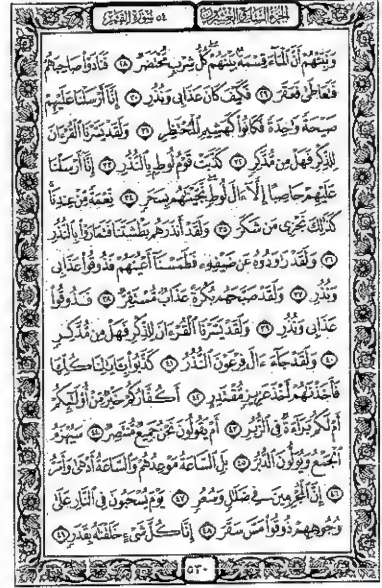 الجزء السابع والعشرون ٥٤ سورة القمر
وَنَبِّئْهُمْ أَنَّ الْمَاءَ قِسْمَةٌ بَيْنَهُمْ كُلُّ شِرْبٍ مُحْتَضَرٌ ٢٨ فَنَادَوْا صَاحِبَهُمْ
فَتَعَاطَىٰ فَعَقَرَ ٢٩ فَكَيْفَ كَانَ عَذَابِي وَنُذُرِ ٣٠ إِنَّا أَرْسَلْنَا عَلَيْهِمْ
صَيْحَةً وَاحِدَةً فَكَانُوا كَهَشِيمِ الْمُحْتَظِرِ ٣١ وَلَقَدْ يَسَّرْنَا الْقُرْآنَ
لِلذِّكْرِ فَهَلْ مِنْ مُدَّكِرٍ ٣٢ كَذَّبَتْ قَوْمُ لُوطٍ بِالنُّذُرِ ٣٣ إِنَّا أَرْسَلْنَا
عَلَيْهِمْ حَاصِبًا إِلَّا آلَ لُوطٍ نَجَّيْنَاهُمْ بِسَحَرٍ ٣٤ نِعْمَةً مِنْ عِنْدِنَا
كَذَٰلِكَ نَجْزِي مَنْ شَكَرَ ٣٥ وَلَقَدْ أَنْذَرَهُمْ بَطْشَتَنَا فَتَمَارَوْا بِالنُّذُرِ
٣٦ وَلَقَدْ رَاوَدُوهُ عَنْ ضَيْفِهِ فَطَمَسْنَا أَعْيُنَهُمْ فَذُوقُوا عَذَابِي
وَنُذُرِ ٣٧ وَلَقَدْ صَبَّحَهُمْ بُكْرَةً عَذَابٌ مُسْتَقِرٌّ ٣٨ فَذُوقُوا
عَذَابِي وَنُذُرِ ٣٩ وَلَقَدْ يَسَّرْنَا الْقُرْآنَ لِلذِّكْرِ فَهَلْ مِنْ مُدَّكِرٍ
٤٠ وَلَقَدْ جَاءَ آلَ فِرْعَوْنَ النُّذُرُ ٤١ كَذَّبُوا بِآيَاتِنَا كُلِّهَا
فَأَخَذْنَاهُمْ أَخْذَ عَزِيزٍ مُقْتَدِرٍ ٤٢ أَكُفَّارُكُمْ خَيْرٌ مِنْ أُولَٰئِكُمْ
أَمْ لَكُمْ بَرَاءَةٌ فِي الزُّبُرِ ٤٣ أَمْ يَقُولُونَ نَحْنُ جَمِيعٌ مُنْتَصِرٌ ٤٤ سَيُهْزَمُ
الْجَمْعُ وَيُوَلُّونَ الدُّبُرَ ٤٥ بَلِ السَّاعَةُ مَوْعِدُهُمْ وَالسَّاعَةُ أَدْهَىٰ وَأَمَرُّ
٤٦ إِنَّ الْمُجْرِمِينَ فِي ضَلَالٍ وَسُعُرٍ ٤٧ يَوْمَ يُسْحَبُونَ فِي النَّارِ عَلَىٰ
وُجُوهِهِمْ ذُوقُوا مَسَّ سَقَرَ ٤٨ إِنَّا كُلَّ شَيْءٍ خَلَقْنَاهُ بِقَدَرٍ ٤٩
٥٣٠